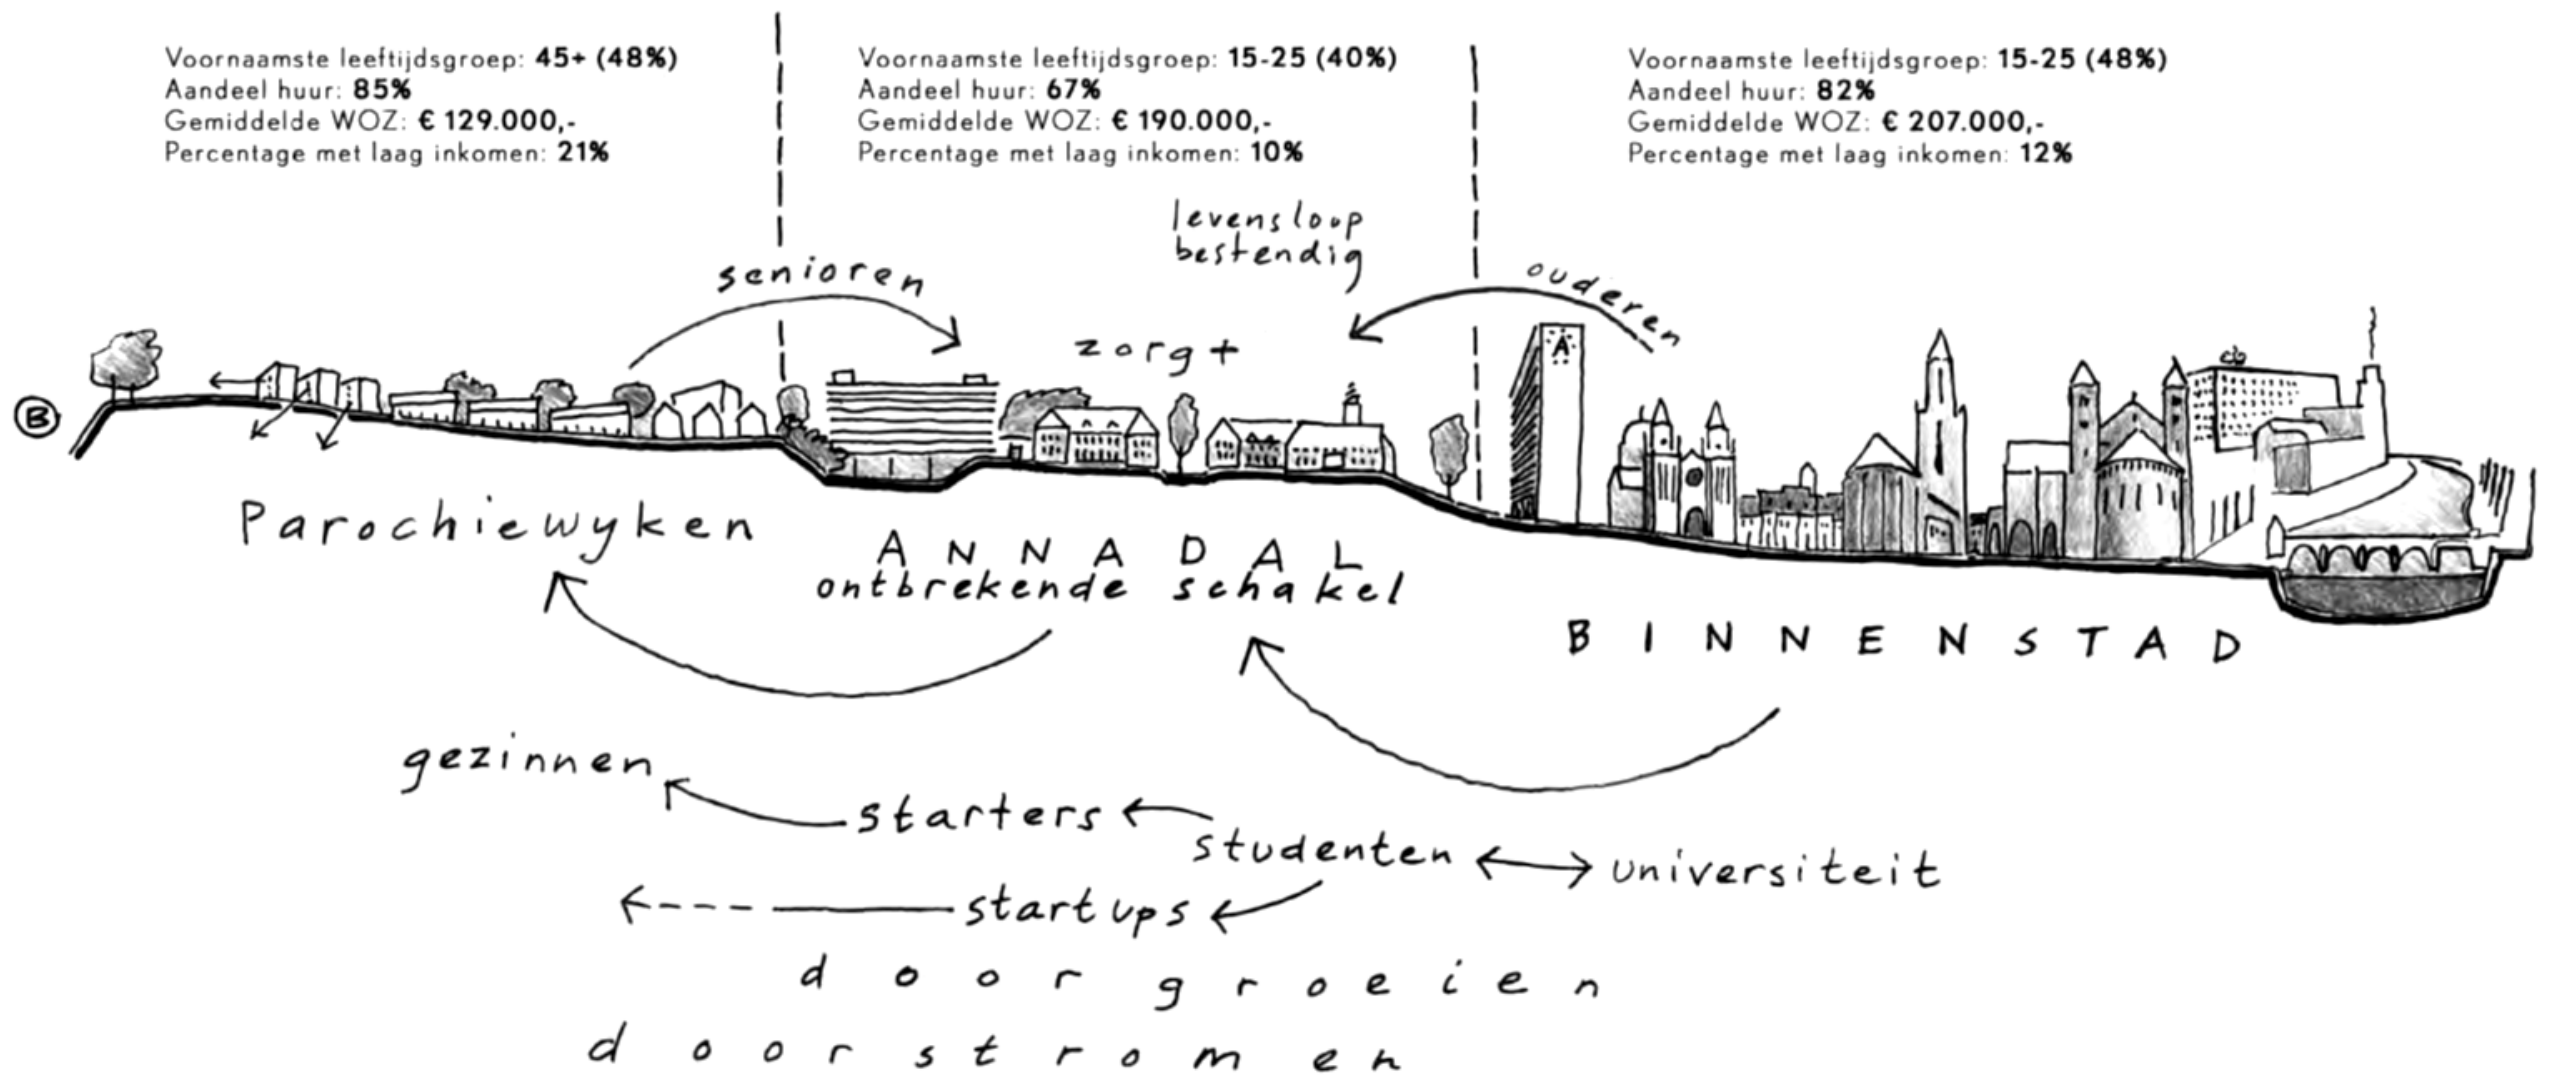 Voornaamste leeftijdsgroep: 45+ (48%)
Aandeel huur: 85%
Gemiddelde WOZ: € 129.000,-
Percentage met laag inkomen: 21%
Voornaamste leeftijdsgroep: 15-25 (40%)
Aandeel huur: 67%
Gemiddelde WOZ: € 190.000,-
Percentage met laag inkomen: 10%
Voornaamste leeftijdsgroep: 15-25 (48%)
Aandeel huur: 82%
Gemiddelde WOZ: € 207.000,-
Percentage met laag inkomen: 12%
levensloop
bestendig
senioren
ouderen
zorg+
A
B
Parochiewyken
ANNADAL
ontbrekende schakel
BINNENSTAD
gezinnen
starters
studenten
universiteit
startups
doorgroeien
doorstromen